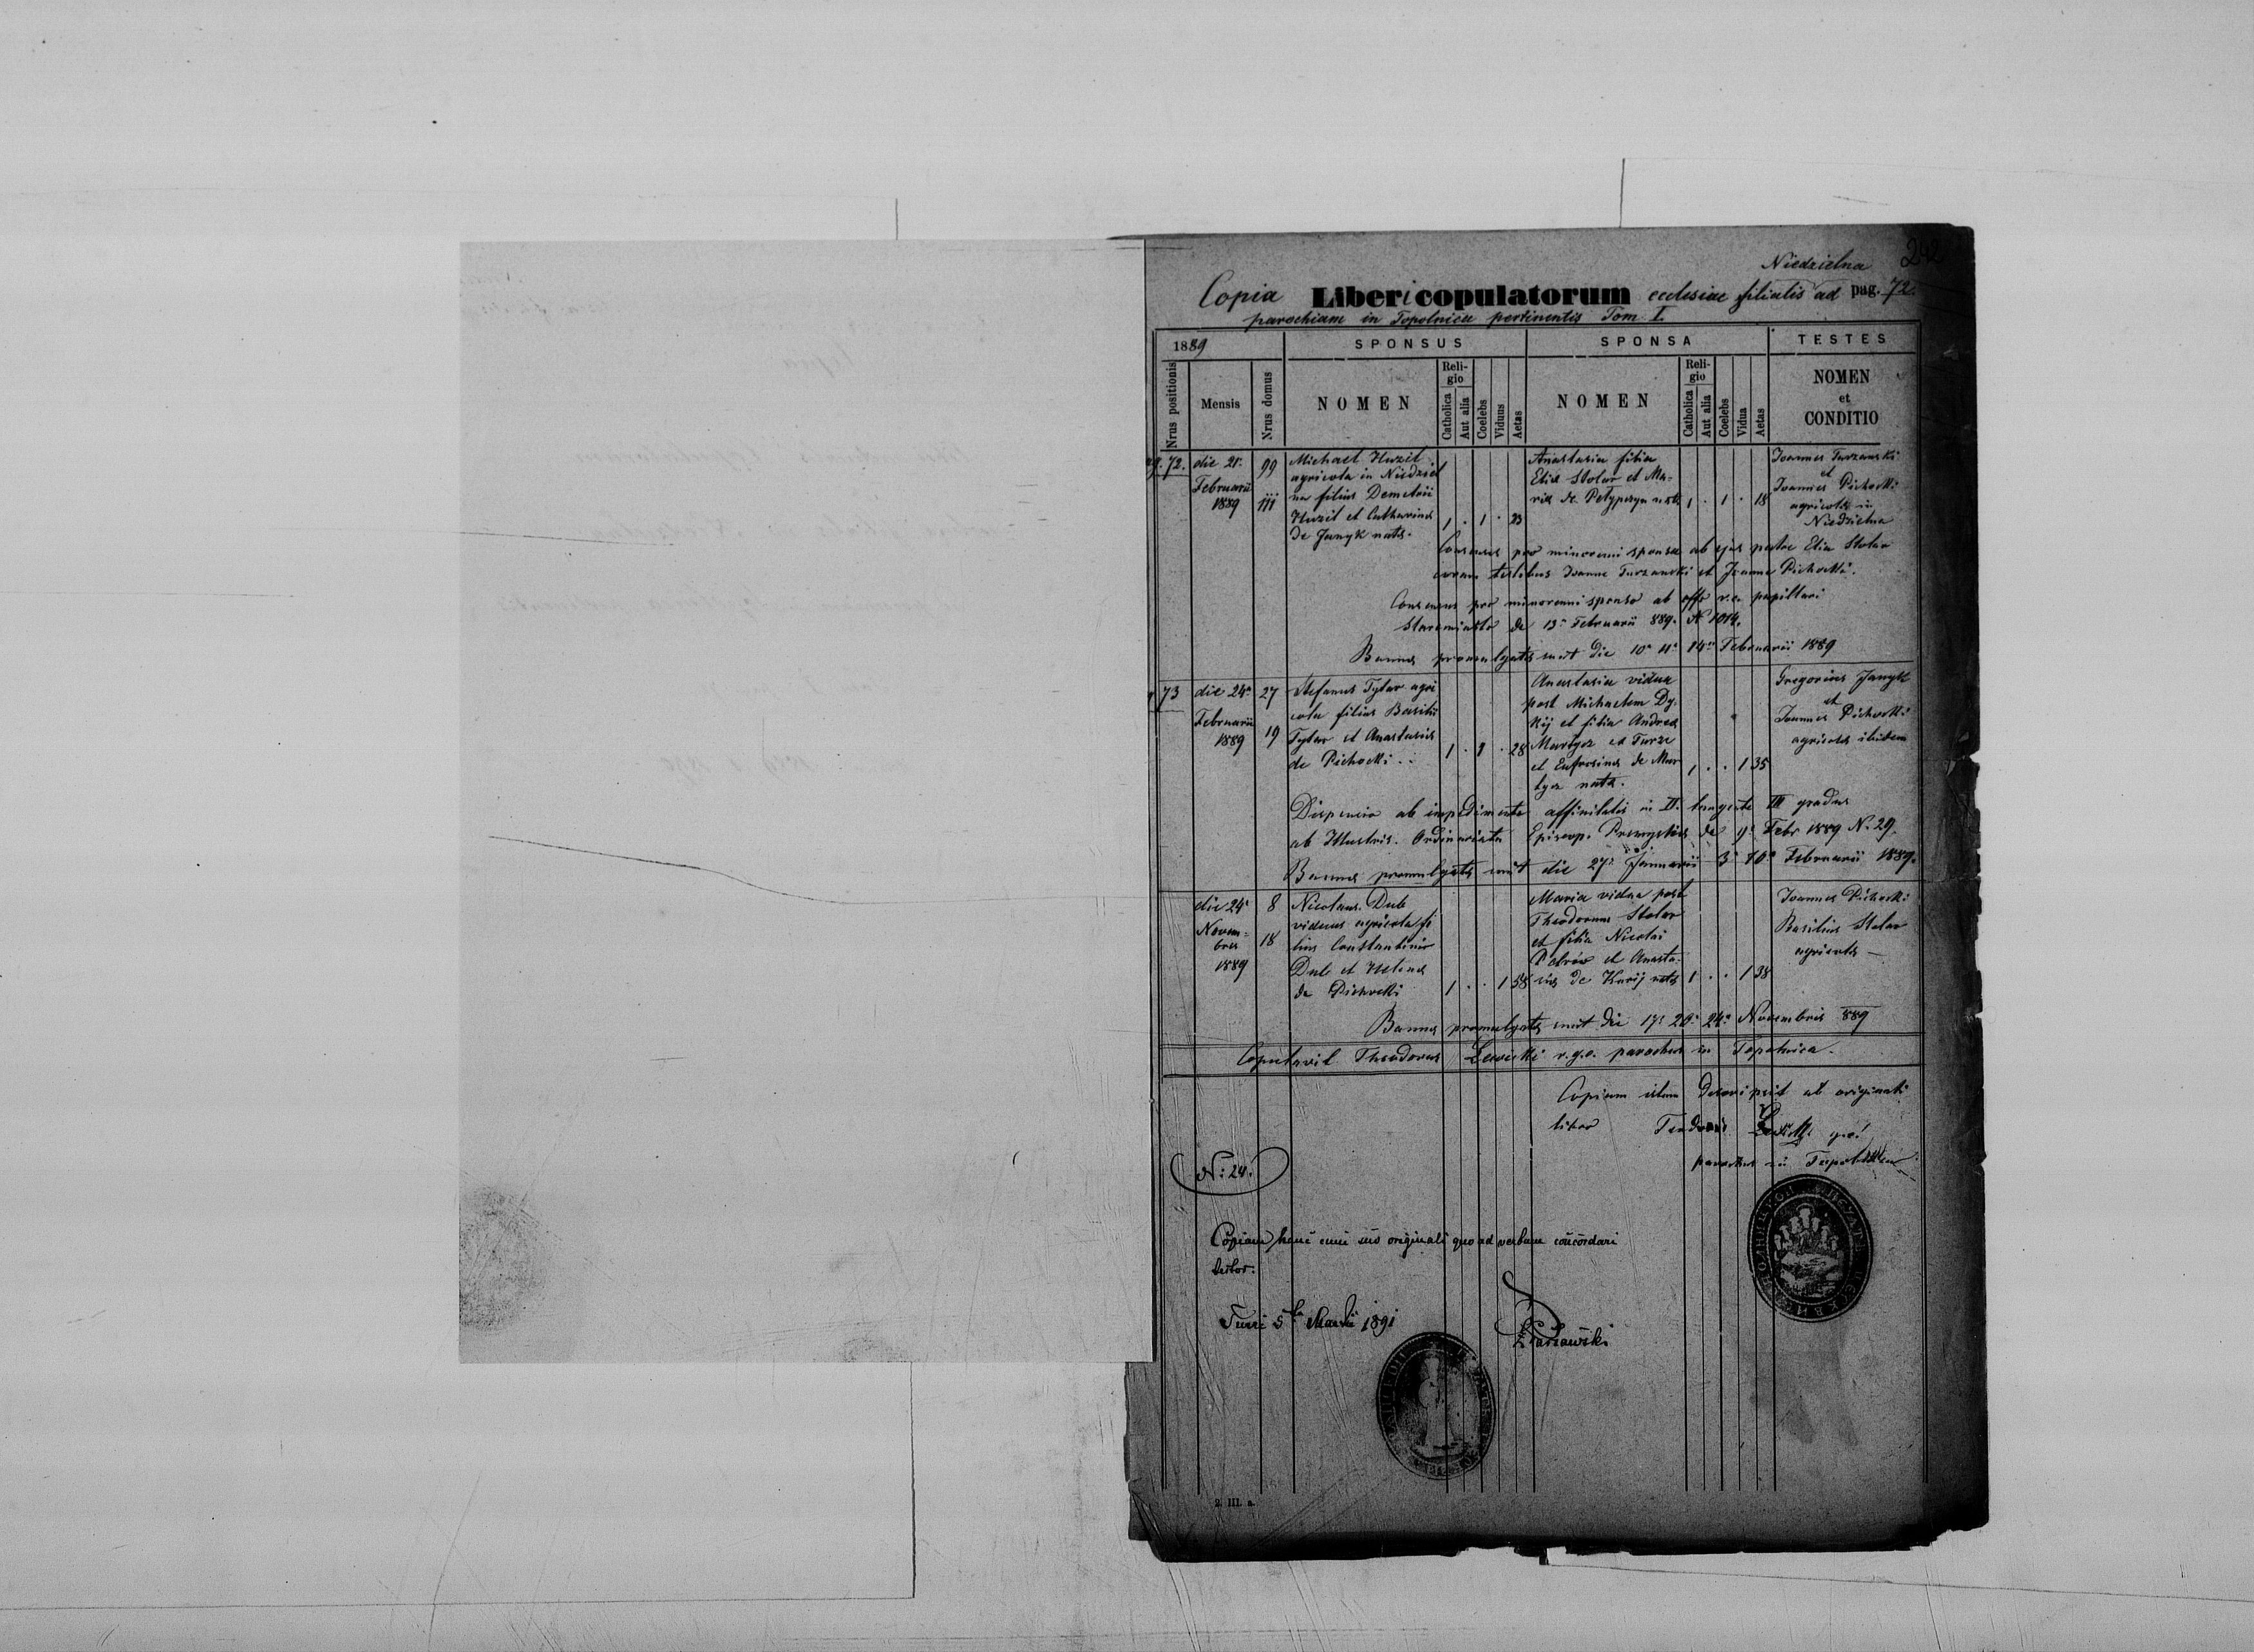 Niedzielna 242
Copia Liberi copulatorum ecclesiae filialis ad pag. 72.
parochiam in Topolnica pertinentis Tom I.
1889 SPONSUS SPONSA TESTES
Nrus positionis Mensis Nrus domus NOMEN Religio Catholica Aut alia Coelebs Viduus Aetas NOMEN Religio Catholica Aut alia Coelebs Vidua Aetas NOMEN et CONDITIO
72. die 21a Februarii 1889
99
111
Michael Huzil
agricola in Niedziel
na filius Demetrii
Huzil et Catharina
de Janyk nata.
1 . 1 . 23
Anastasia filia
Elia Stolar et Ma-
ria de Petyperyn nata
1 . 1 . 18
Joannes Turzanski
et
Joannes Pichocki
agricola in
Niedzielna
Consensus pro minorenni sponsa ab ejus patre Elia Stolar
coram testibus Joanne Turzanski et Joanne Pichocki.
Consensus pro minorenni sponso ab offo r.c. pupillari
Staremiasto de 13a Februarii 889. N 1014.
Banna promulgata sunt die 10a 11a 14a Februarii 1889
73 die 24a Februarii 1889
27
19
Stefanus Tytar agri
cola filius Basilii
Tytar et Anastasia
de Pichocki
1 . 1 . 28
Anastasia vidua
post Michaelem Dy
kij et filia Andrea
Martycz ex Turze
et Eufrosina de Mar
tycz nata.
1 . . 1 35
Gregorius Janyk
et
Joannes Pichocki
agricola ibidem
Dispensio ab impedimento affinitatis in II. tangente III gradus
ab Illustris. Ordinariatu Episcop. Premysliens de 9a Febr 1889 N. 29.
Banna promulgata sunt die 27a Januarii 3a 10a Februarii 1889.
die 24a Novem=
bris
1889
8
18
Nicolaus Dub
viduus agricola fi
lius Constantini
Dub et Helena
de Pichocki
1 . . 1 58
Maria vidua post
Theodorum Stolar
et filia Nicolai
Petrów et Anasta
sia de Kurij nata
1 . . 1 38
Joannes Pichocki
Basilius Stolar
agricola
Banna promulgata sunt die 17a 20a 24a Novembris 889
Copulavit Theodorus Lewicki r.g.c. parochus in Topolnica.
Copiam istam descripsit ab originali
libro Teodorus Lewicki
parochus in Topolnica
N: 24.
Copiam hanc cum suo originali quo ad verbum concordari
testor.
Turze 5ta Martii 1891
2. III. a.